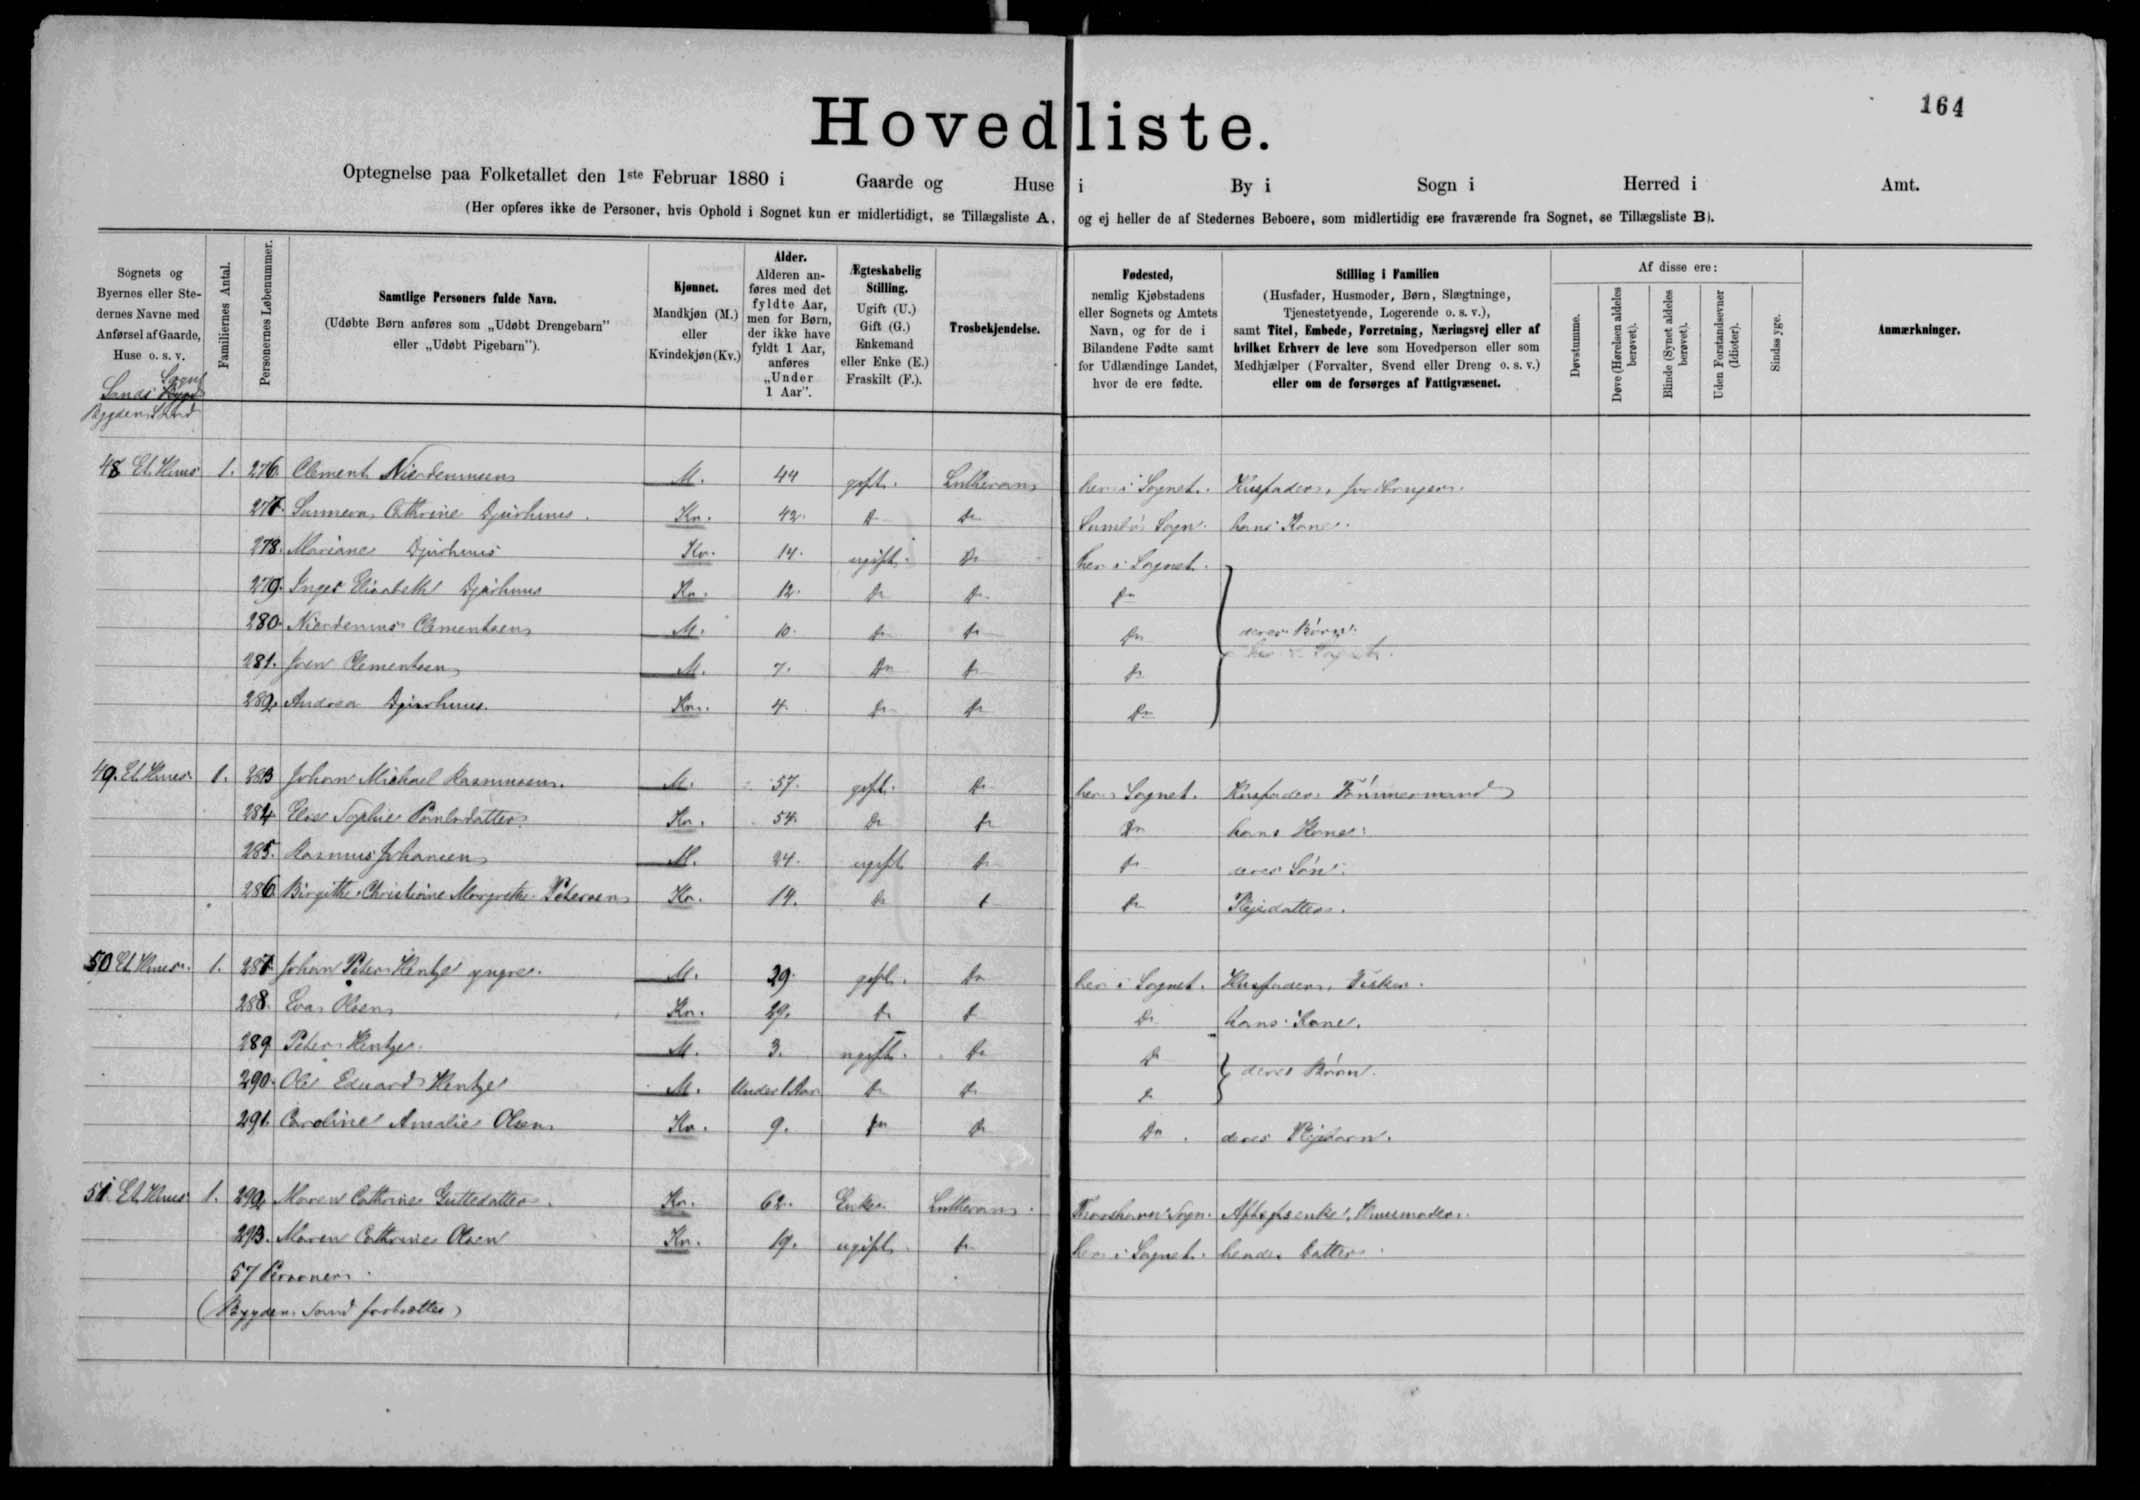 164
Hovedliste.
Optegnelse paa Folketallet den 1ste Februar 1880 i Gaarde og Huse i By i Sogn i Herred i Amt.
(Her opføres ikke de Personer, hvis Ophold i Sognet kun er midlertidigt, se Tillægsliste A, og ej heller de af Stedernes Beboere, som midlertidig ere fraværende fra Sognet, se Tillægsliste B).
Sognets og Byernes eller Stedernes Navne med Anførsel af Gaarde, Huse o. s. v.
Familiernes Antal.
Personernes Løbenummer.
Samtlige Personers fulde Navn.
(Udøbte Børn anføres som „Udøbt Drengebarn" eller „Udøbt Pigebarn").
Kjønnet.
Mandkjøn (M.) eller Kvindekjøn (Kv.)
Alder.
Alderen anføres med det fyldte Aar, men for Børn, der ikke have fyldt 1 Aar, anføres „Under 1 Aar".
Ægteskabelig Stilling.
Ugift (U.) Gift (G.) Enkemand eller Enke (E.) Fraskilt (F.).
Trosbekjendelse.
Fødested,
nemlig Kjøbstadens eller Sognets og Amtets Navn, og for de i Bilandene Fødte samt for Udlændinge Landet, hvor de ere fødte.
Stilling i Familien
(Husfader, Husmoder, Børn, Slægtninge, Tjenestetyende, Logerende o. s. v.),
samt Titel, Embede, Forretning, Næringsvej eller af hvilket Erhverv de leve som Hovedperson eller som Medhjælper (Forvalter, Svend eller Dreng o. s. v.) eller om de forsørges af Fattigvæsenet.
Af disse ere:
Døvstumme.
Døve (Hørelsen aldeles berøvet).
Blinde (Synet aldeles berøvet).
Uden Forstandsevner (Idioter).
Sindssyge.
Anmærkninger.
Sands Sogn
Bygden Sand
48 Et Huus 1. 276. Clement M. 44 gift. Lutheran her i Sognet. Huusfader,
277. Sunneva Cathrine Djurhuus. Kv. 42. Do Do Sumbø Sogn. hans Kone.
278. Mariane Djurhuus Kv. 14. ugift. Do her i Sognet.
279. Inger Elisabeth Djurhuus Kv. 12. Do Do Do
280. Clementsen M. 10. Do Do Do deres Børn.
281. Joen Clementsen M. 7. Do Do Do
282. Andrea Djurhuus. Kv. 4. Do Do Do
49. Et Huus. 1. 283 Johan Michael Rasmussen. M. 57. gift. Do her i Sognet. Huusfader, Tømmermand
284. Else Sophie Poulsdatter. Kv. 54. Do Do Do hans Kone.
285. Rasmus Johansen M. 24. ugift Do Do deres Søn.
286 Birgithe Christiane Margrethe Petersen Kv. 14. Do Do Do Plejedatter.
50 Et Huus. 1. 287 Johan Peter Hentze yngre. M. 29. gift. Do her i Sognet. Huusfader, Fisker.
288. Eva Olsen Kv. 29. Do Do Do hans Kone.
289 Peter Hentze. M. 3. ugift. Do Do deres Børn.
290. Ole Eduard Hentze M. Under 1 Aar Do Do Do
291. Caroline Amalie Olsen Kv. 9. Do Do Do deres Plejebarn.
51 Et Huus. 1. 292 Maren Cathrine Guttesdatter. Kv. 62. Enke. Lutheran. Thorshavn Sogn. Aftægtsenke, Huusmoder.
293. Maren Cathrine Olsen Kv. 19. ugift. Do her i Sognet. hendes Datter.
57 Personer.
(Bygden Sand fortsættes)